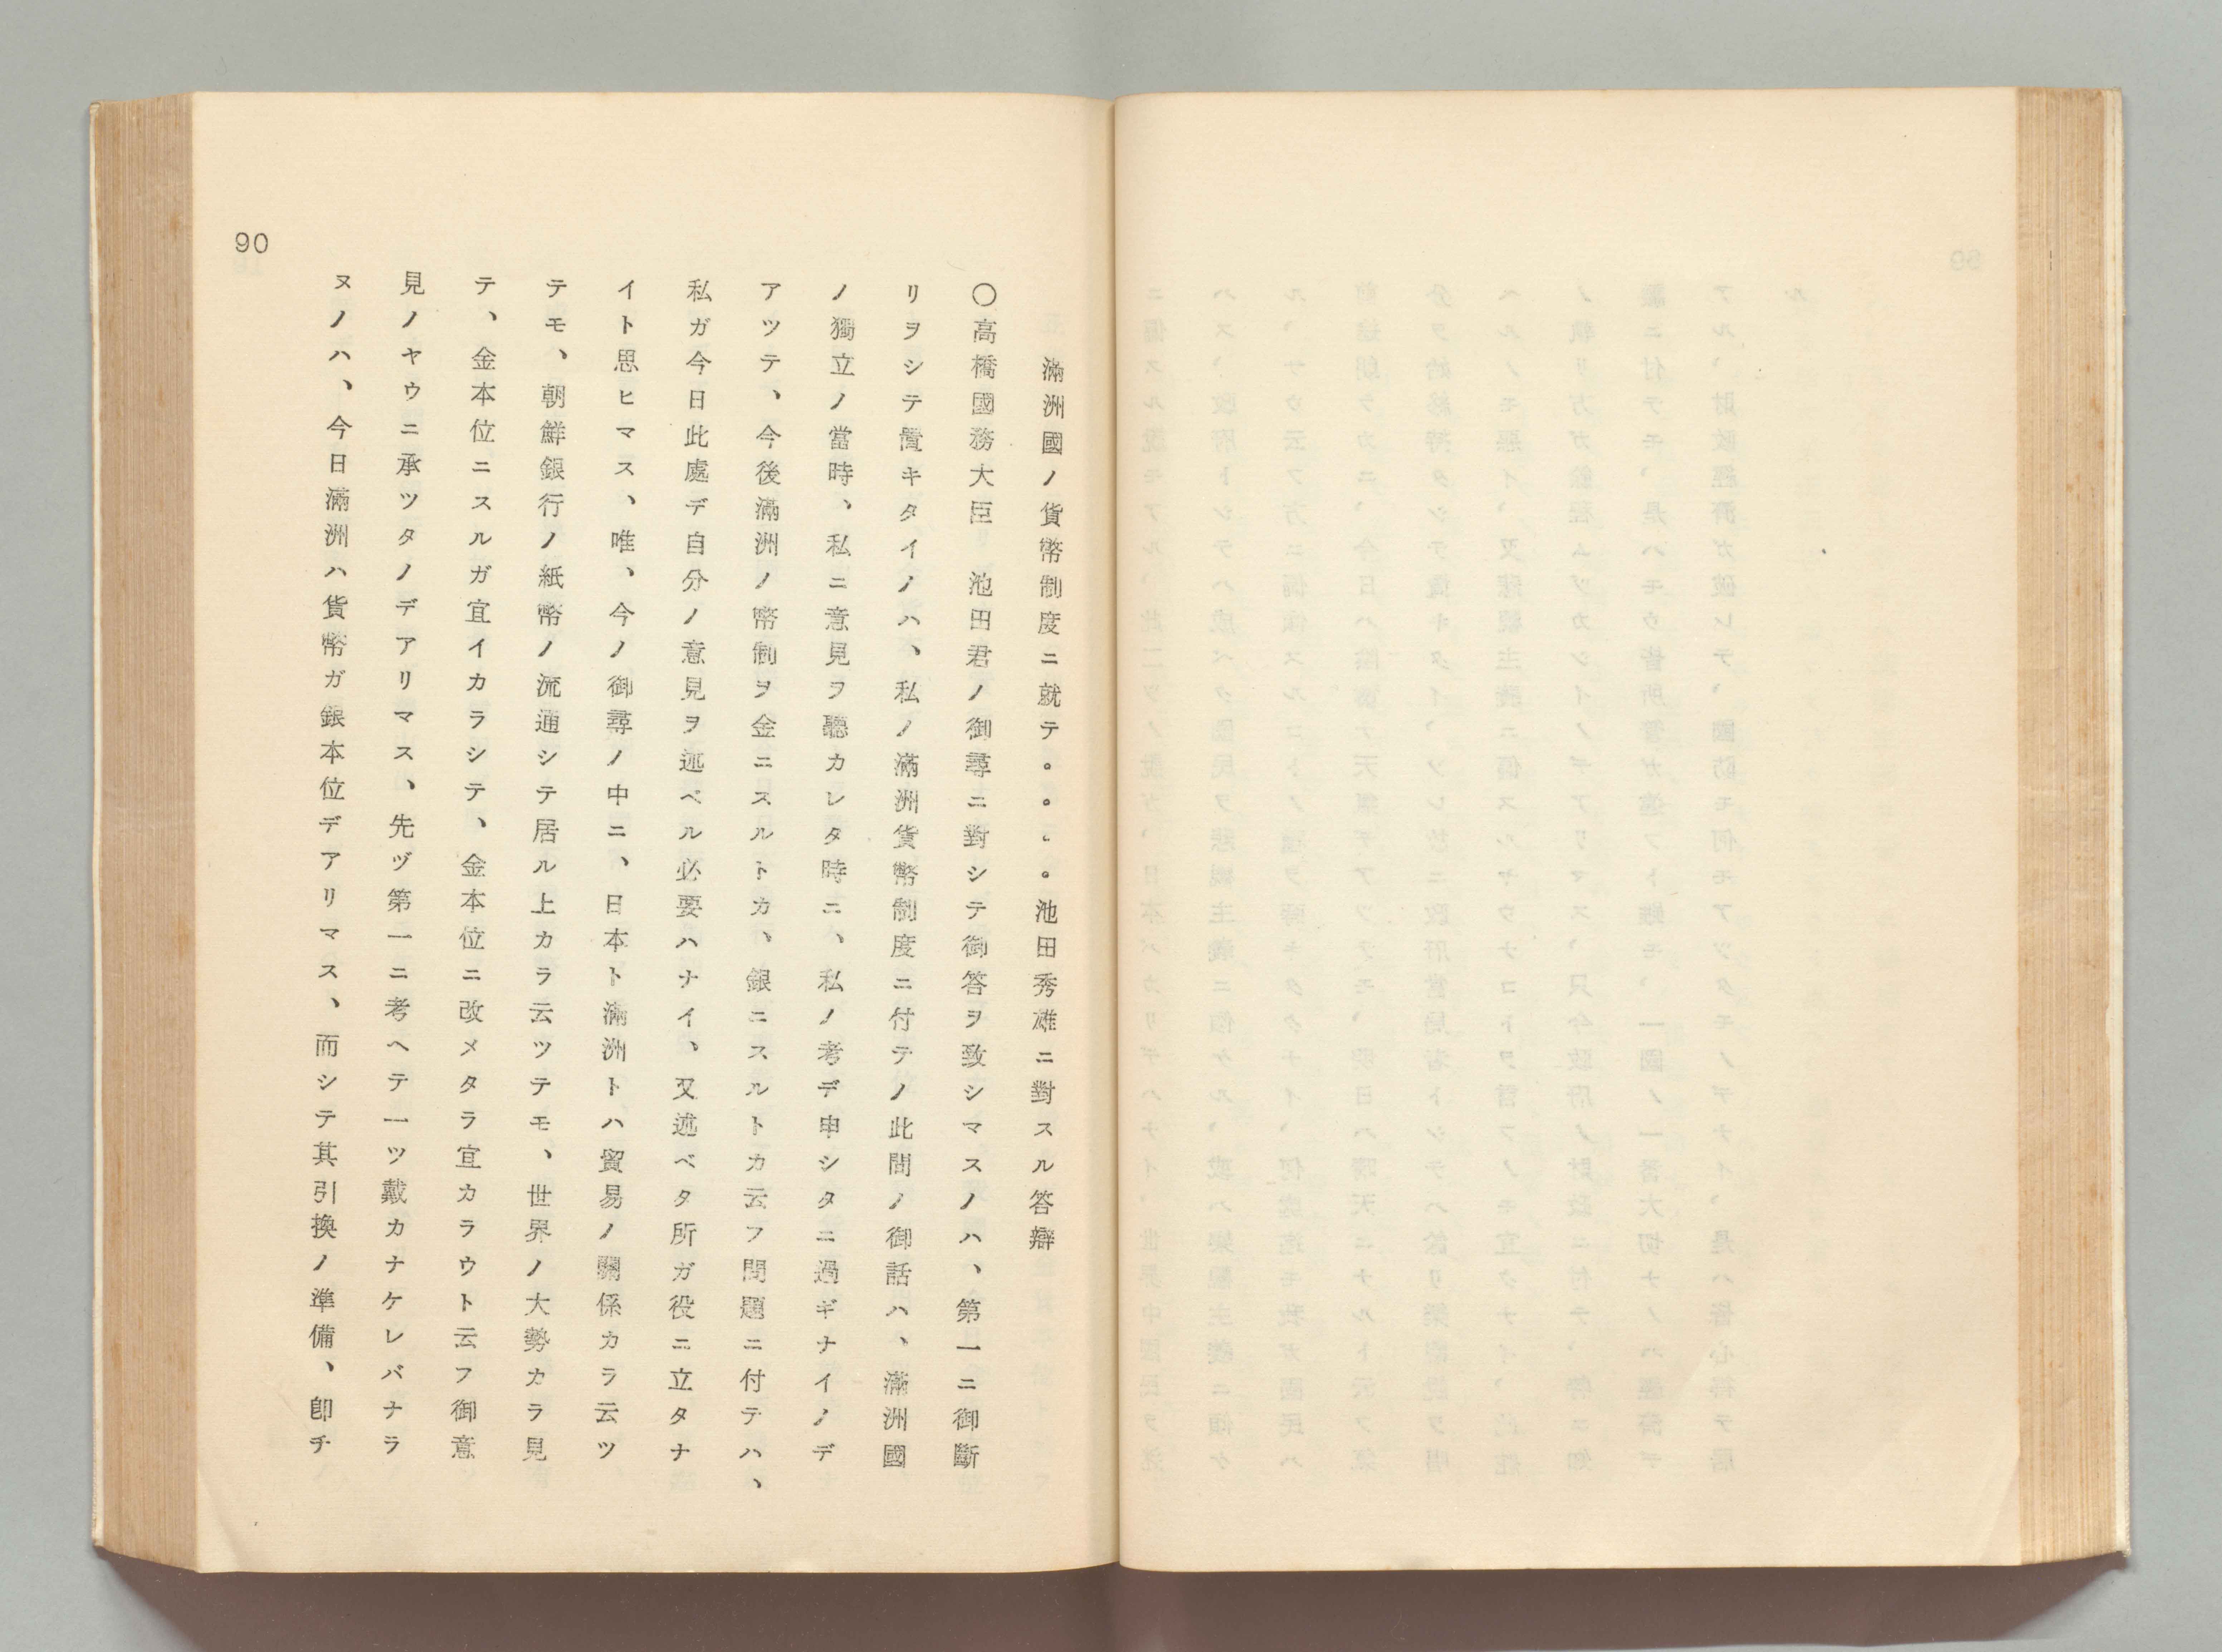 滿洲國ノ貨幣制度ニ就テ。。。。池田秀雄ニ對スル答辯
〇高橋國務大臣 池田君ノ御尋ニ對シテ御答ヲ致シマスノハ、第一ニ御斷
リヲシテ置キタイノハ、私ノ滿洲貨幣制度ニ付テノ此間ノ御話ハ、滿洲國
ノ獨立ノ當時、私ニ意見ヲ聽カレタ時ニ、私ノ考デ申シタニ過ギナイノデ
アツテ、今後滿洲ノ幣制ヲ金ニスルトカ、銀ニスルトカ云フ問題ニ付テハ、
私ガ今日此處デ自分ノ意見ヲ述ベル必要ハナイ、又述ベタ所ガ役ニ立タナ
イト思ヒマス、唯、今ノ御尋ノ中ニ、日本ト滿洲トハ貿易ノ關係カラ云ツ
テモ、朝鮮銀行ノ紙幣ノ流通シテ居ル上カラ云ツテモ、世界ノ大勢カラ見
テ、金本位ニスルガ宜イカラシテ、金本位ニ改メタラ宜カラウト云フ御意
見ノヤウニ承ツタノデアリマス、先ヅ第一ニ考ヘテ一ツ戴カナケレバナラ
ヌノハ、今日滿洲ハ貨幣ガ銀本位デアリマス、而シテ其引換ノ準備、卽チ
90